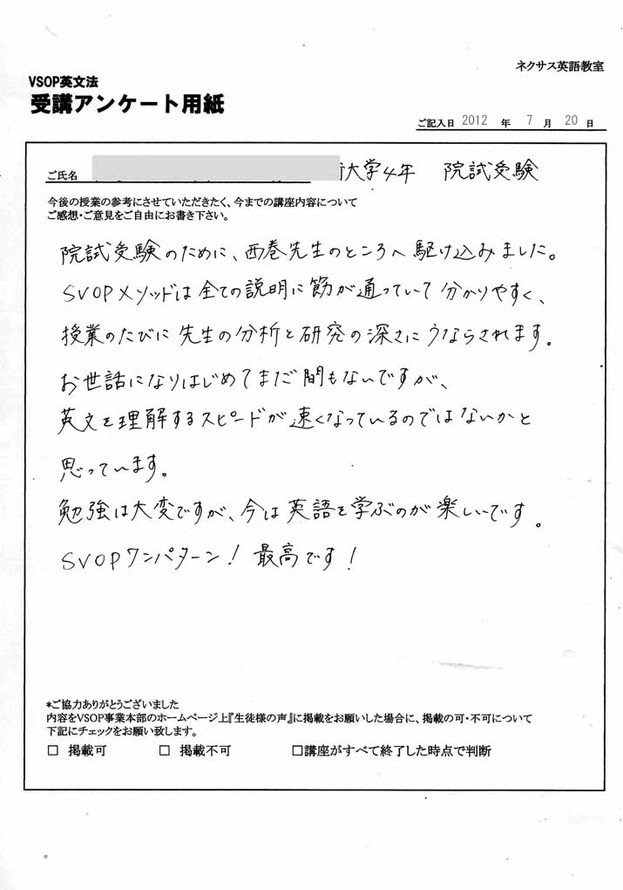 ネクサス英語教室
VSOP英文法
受講アンケート用紙
ご記入日 2012 年 7 月 20 日
ご氏名 大学4年 院試受験
今後の授業の参考にさせていただきたく、今までの講座内容について
ご感想・ご意見をご自由にお書き下さい。
院試受験のために、西巻先生のところへ駆け込みました。
SVOPメソッドは全ての説明に筋が通っていて分かりやすく、
授業のたびに先生の分析と研究の深さにうならされます。
お世話になりはじめてまだ間もないですが、
英文を理解するスピードが速くなっているのではないかと
思っています。
勉強は大変ですが、今は英語を学ぶのが楽しいです。
SVOPワンパターン！最高です！
*ご協力ありがとうございました
内容をVSOP事業本部のホームページ上『生徒様の声』に掲載をお願いした場合に、掲載の可・不可について
下記にチェックをお願い致します。
□ 掲載可 □ 掲載不可 □講座がすべて終了した時点で判断